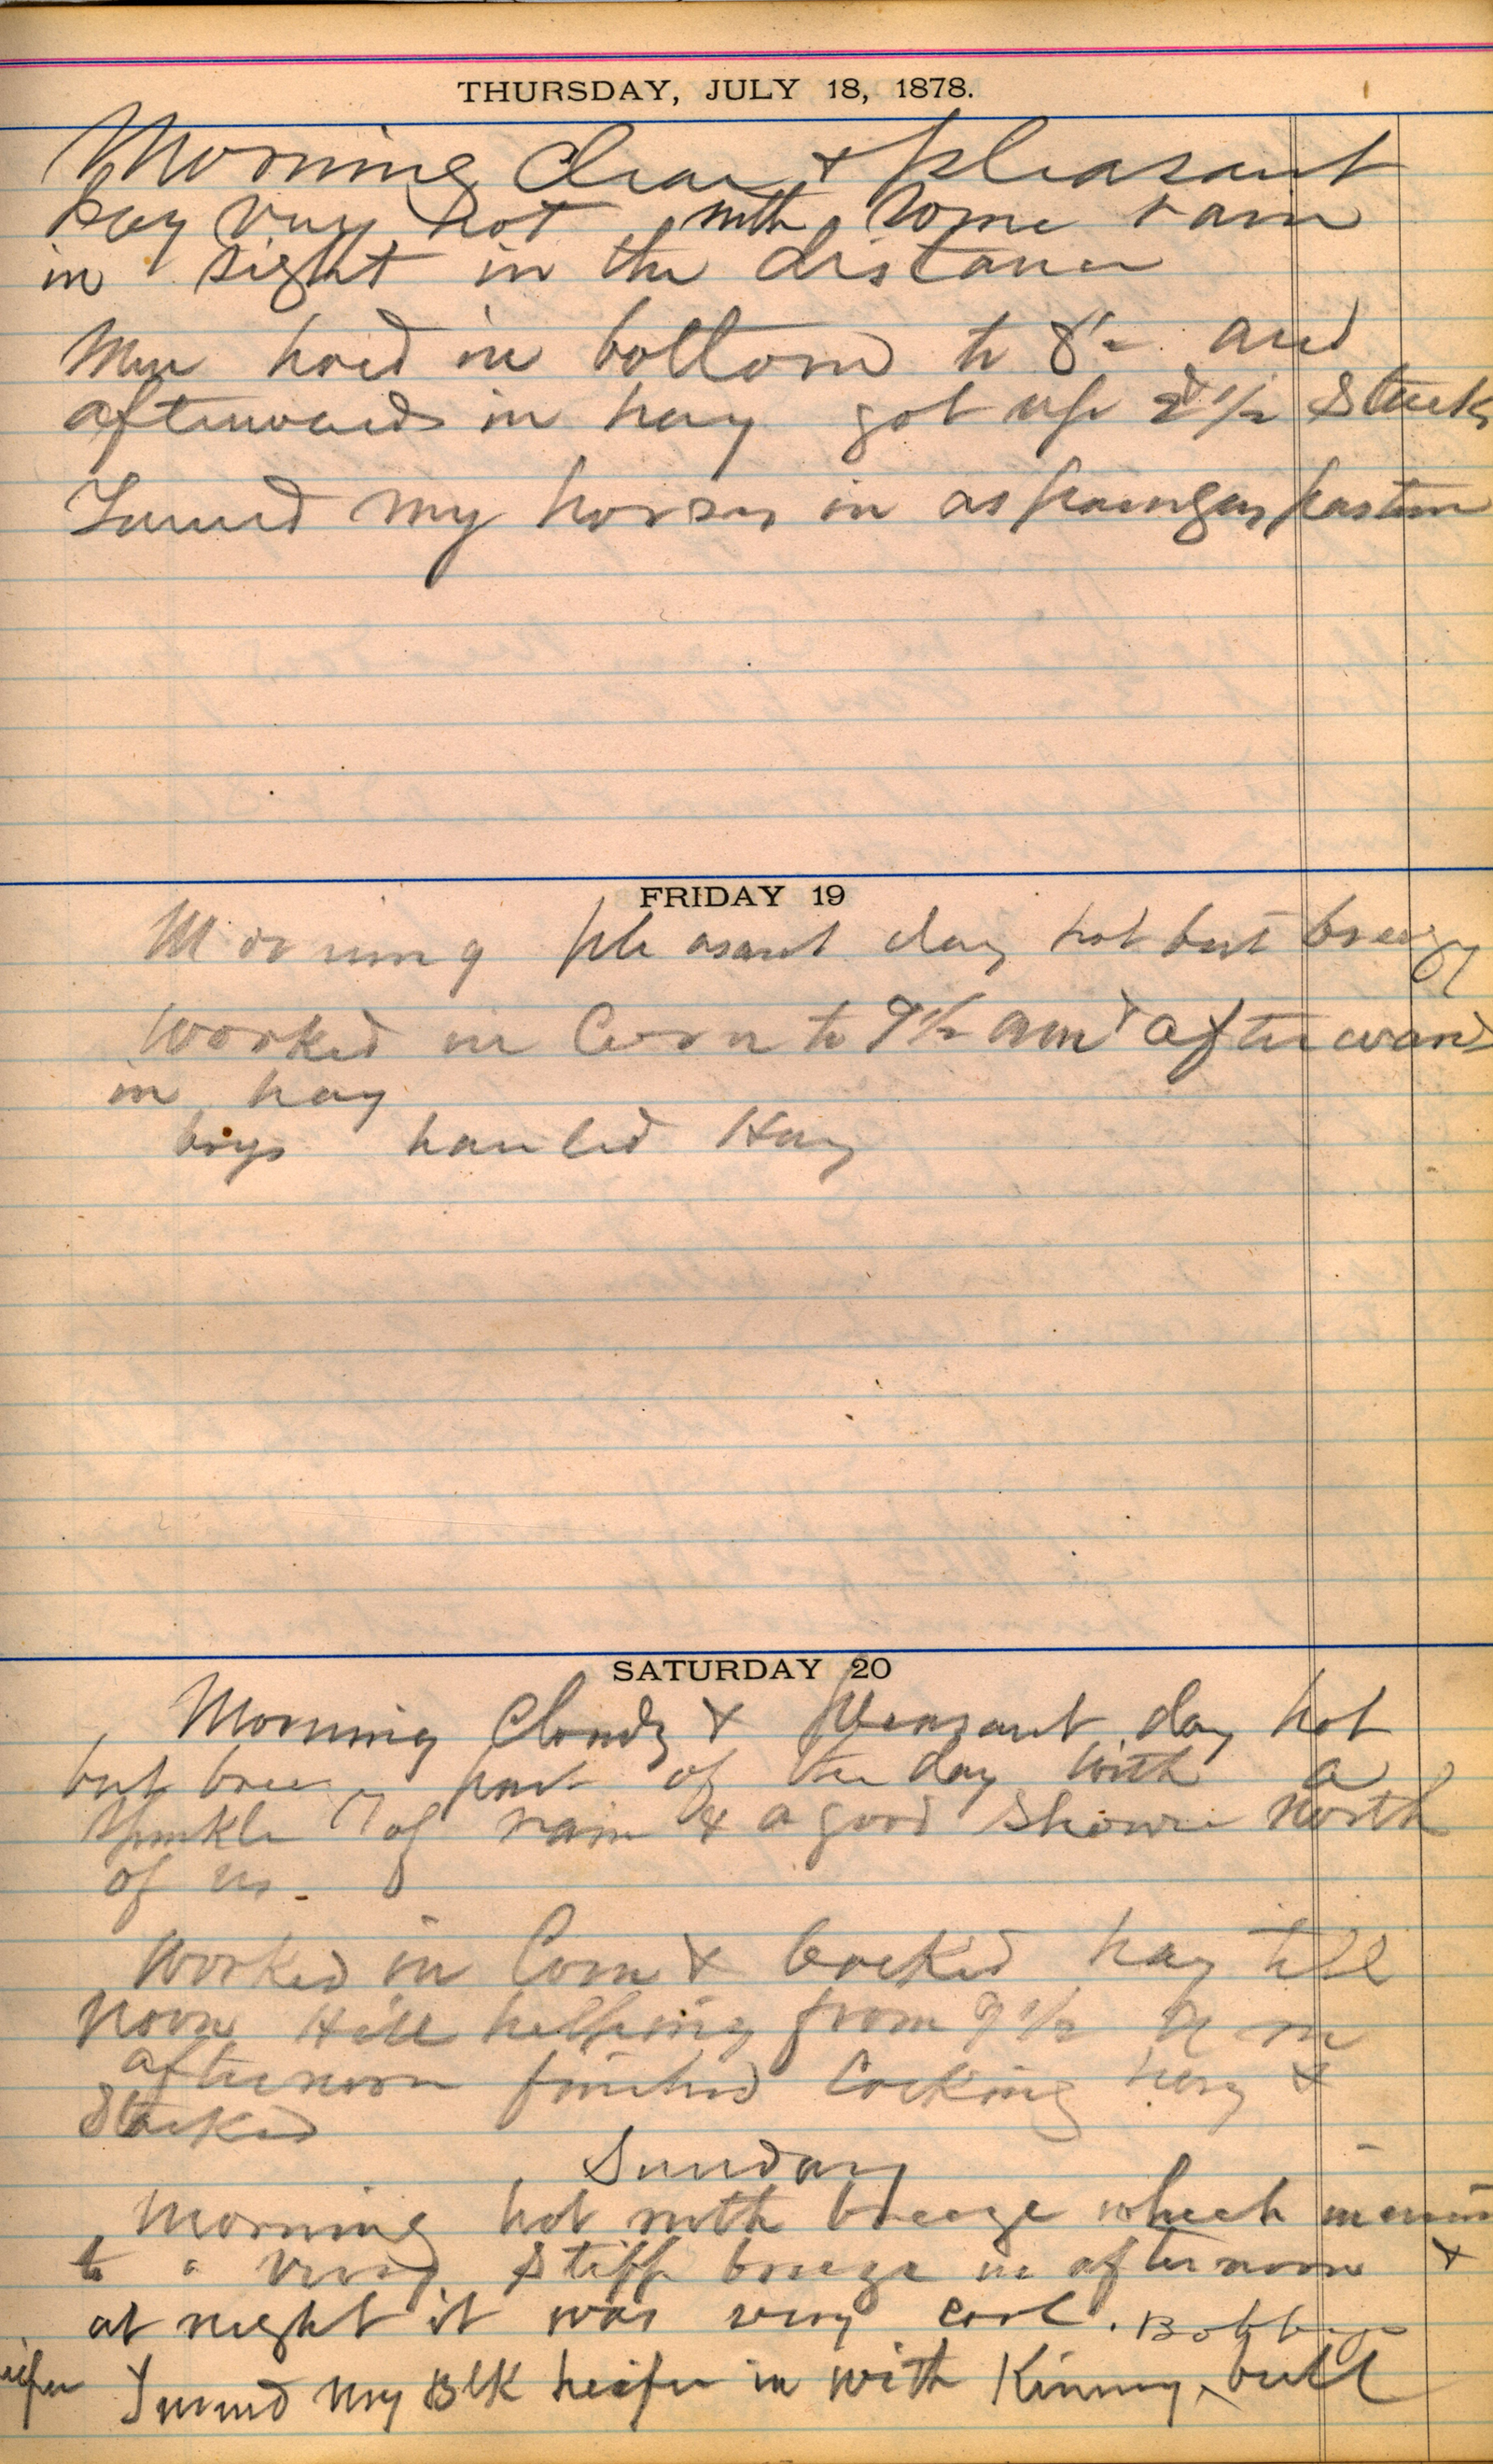 THURSDAY, JULY 18, 1878.
Morning Clear & pleasant
day very hot with some rain
in sight in the distance
Men hoed in bottom to 8 and
afterwards in hay got up 2 1/2 Stacks
Turned my horses in pasture
FRIDAY 19
Morning pleasant day hot but breezy
Worked in Corn to 9 1/2 am & afterwards
in hay
boys hauled Hay
SATURDAY 20
Morning Cloudy & pleasant day hot
but part of the day with a
sprinkle of rain & a good shower North
of us.
Worked in Corn & Cocked hay till
Noon Hill helping from 9 1/2 a m
afternoon finished Cocking hay &
Stacked
Sunday
Morning hot with breeze which
to a very stiff breeze in afternoon &
at night it was very cool.
heifer Turned my Blk heifer in with Kinney bull